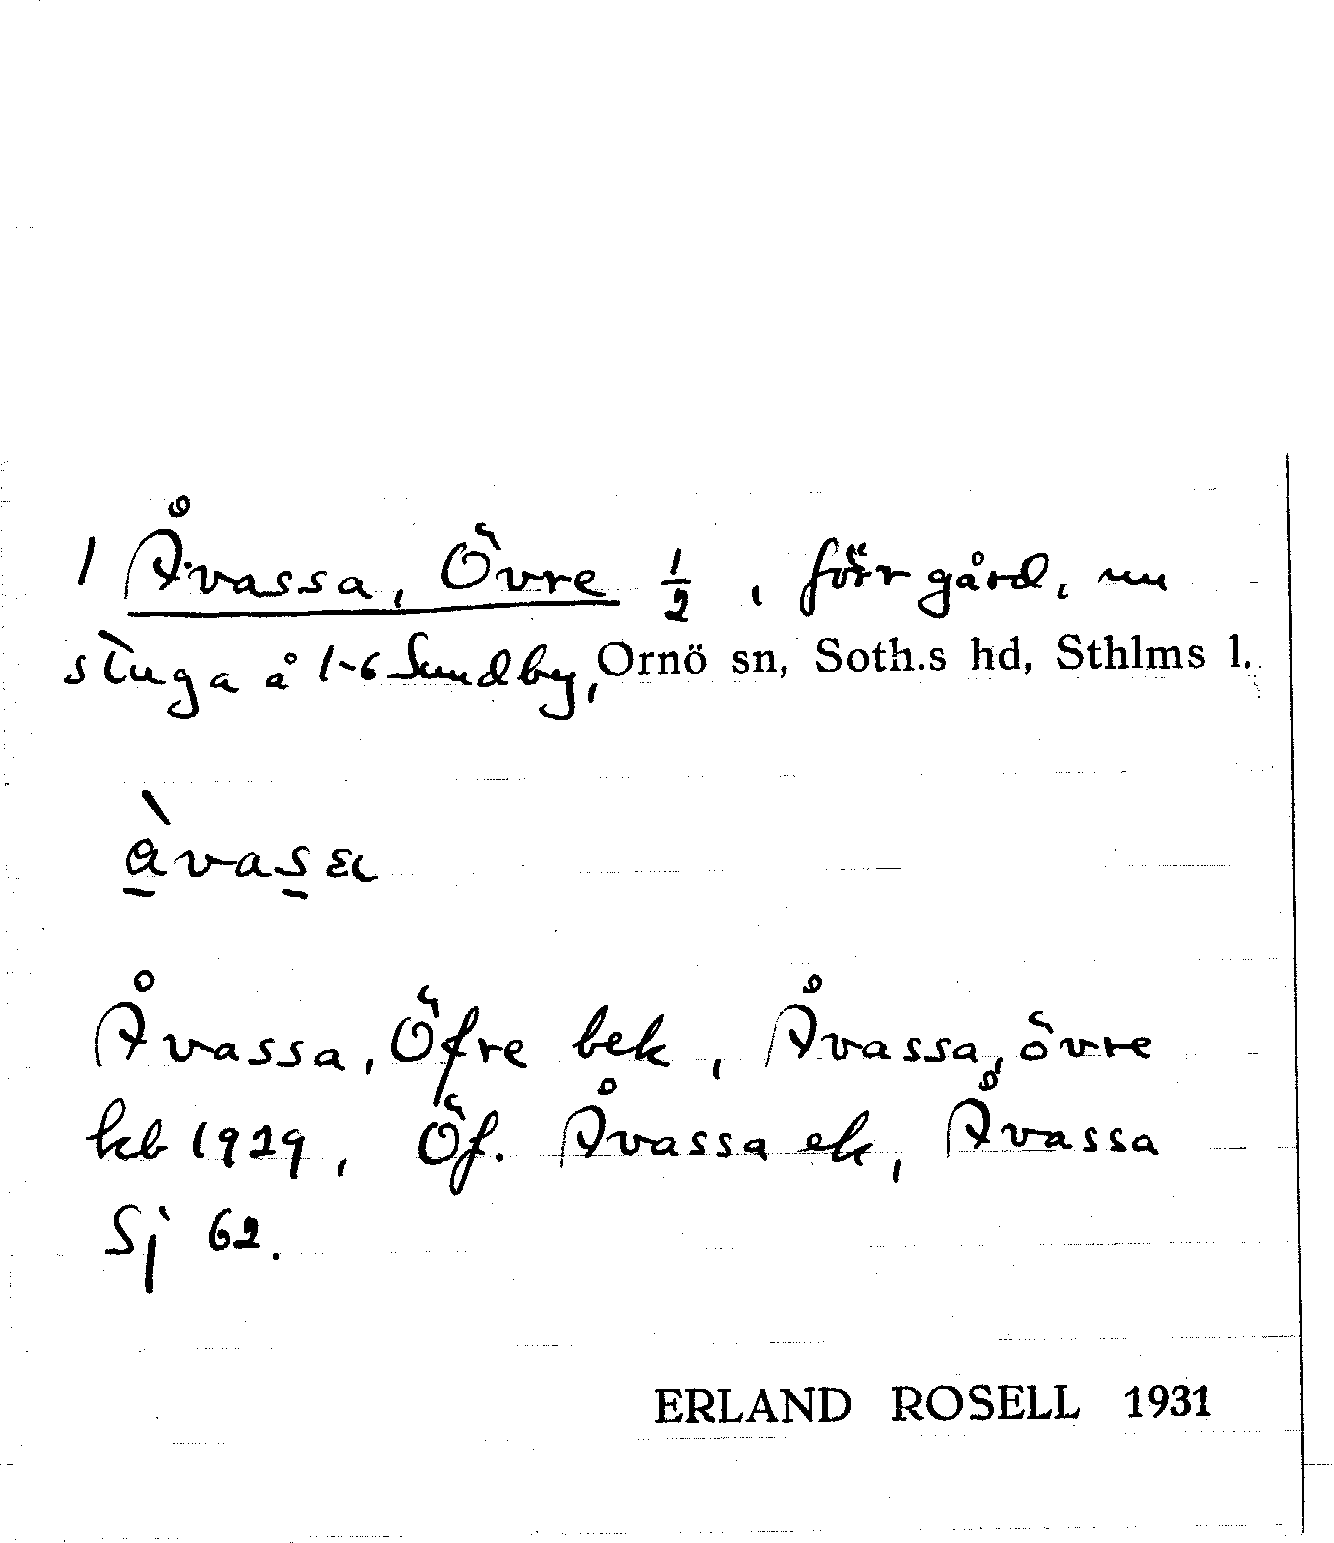 1 Åvassa, Övre 1/2, förr gård, nu
stuga å 1-6 Sundby, Ornö sn, Soth.s hd, Sthlms l.
Åvassa, Öfre bek, Åvassa, övre
kb 1929, Öf. Åvassa ek, Åvassa
Sj 62.
ERLAND ROSELL 1931